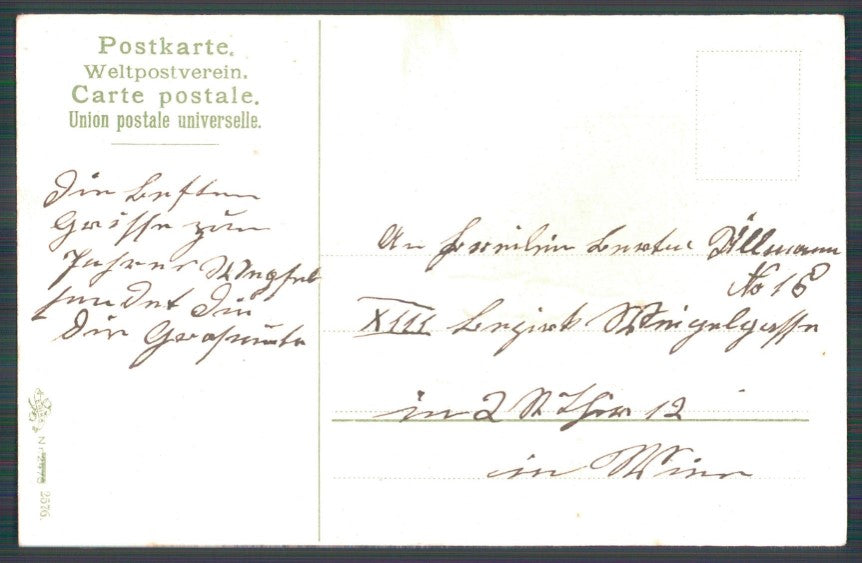 Postkarte.
Weltpostverein.
Carte postale.
Union postale universelle.
Die besten
Grüsse zum
Jahres Wegsel
sendet Dir
Die Grosmutter
An Fräulein Berta Illmann
No 18
XIII Bezirk Weigelgasse
in 2 St Thür 12
in Wien
3576.